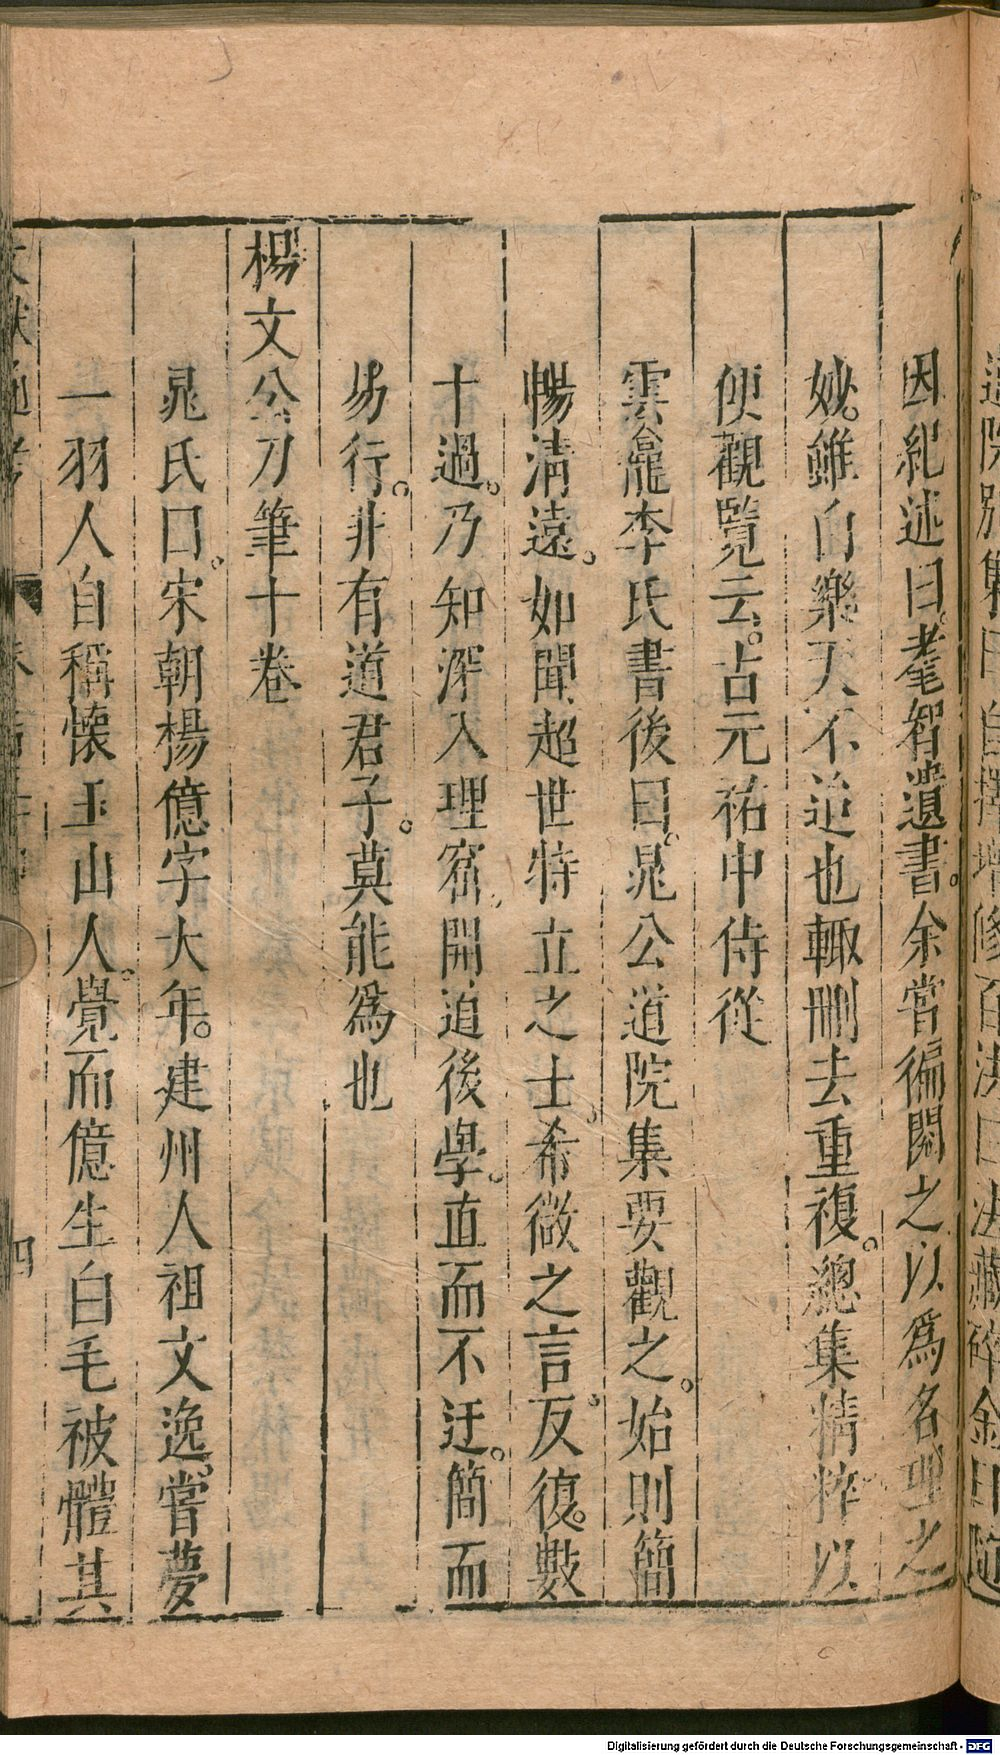 道院別集曰自擇增修百法曰法藏碎金曰隨
因紀述曰耄智遺書余嘗徧閱之以爲名理之
妙雖白樂天不逮也輙刪去重複總集精粹以
便觀覽云占元祐中侍從
雲龕李氏書後曰晁公道院集要觀之始則簡
暢清遠如聞超世特立之士希微之言反復數
十過乃知深入理窟開道後學直而不迂簡而
易行非有道君子莫能爲也
楊文公刀筆十卷
晁氏曰宋朝楊億字大年建州人祖文逸嘗夢
一羽人自稱懷玉山人覺而億生白毛被體其
文獻通考
四
Digitalisierung gefördert durch die Deutsche Forschungsgemeinschaft - DFG